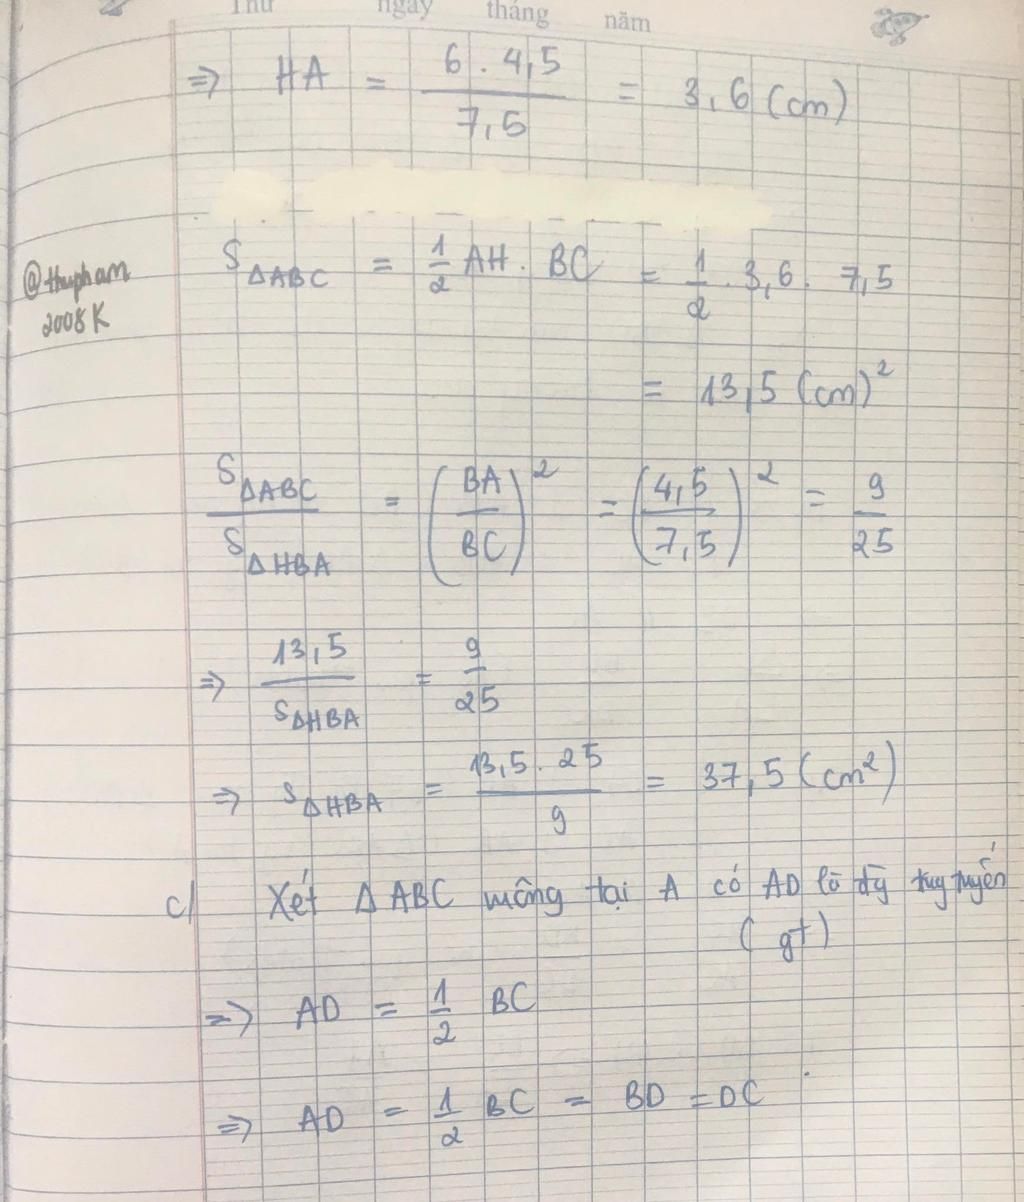 Thứ ngày tháng năm
=> HA = 6 . 4,5 / 7,5 = 3,6 (cm)
S ΔABC = 1/2 AH . BC = 1/2 . 3,6 . 7,5
@thupham
2008K
= 13,5 (cm)²
S ΔABC / S ΔHBA = (BA / BC)² = (4,5 / 7,5)² = 9/25
=> 13,5 / S ΔHBA = 9/25
=> S ΔHBA = 13,5 . 25 / 9 = 37,5 (cm²)
c) Xét Δ ABC vuông tại A có AD là đg tuyến
(gt)
=> AD = 1/2 BC
=> AD = 1/2 BC = BD = DC